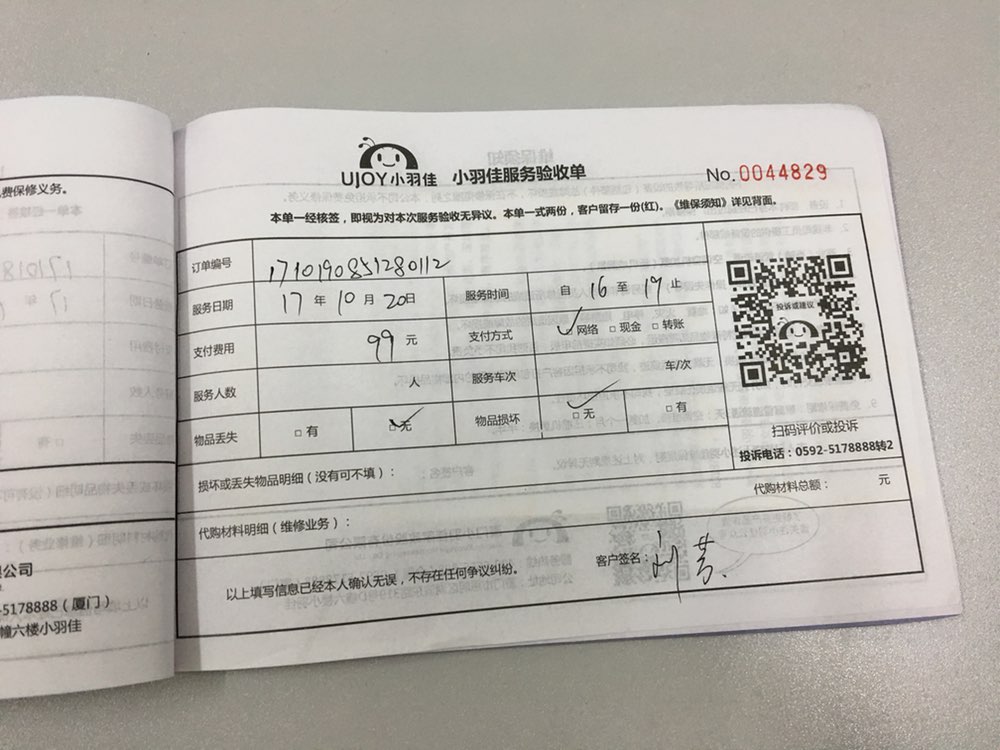 费保修义务。
UJOY小羽佳 小羽佳服务验收单 No.0044829
本单一经核签，即视为对本次服务验收无异议。本单一式两份，客户留存一份(红)。《维保须知》详见背面。
订单编号 1710190851280112
服务日期 17年10月20日 服务时间 自16至17止
支付费用 99元 支付方式 ✓网络 □现金 □转账
服务人数 人 服务车次 车/次
物品丢失 □有 □无 物品损坏 □无 □有
投诉或建议
扫码评价或投诉
投诉电话：0592-5178888转2
损坏或丢失物品明细（没有可不填）：
代购材料总额： 元
代购材料明细（维修业务）：
以上填写信息已经本人确认无误，不存在任何争议纠纷。 客户签名：刘芳
公司
-5178888（厦门）
幢六楼小羽佳